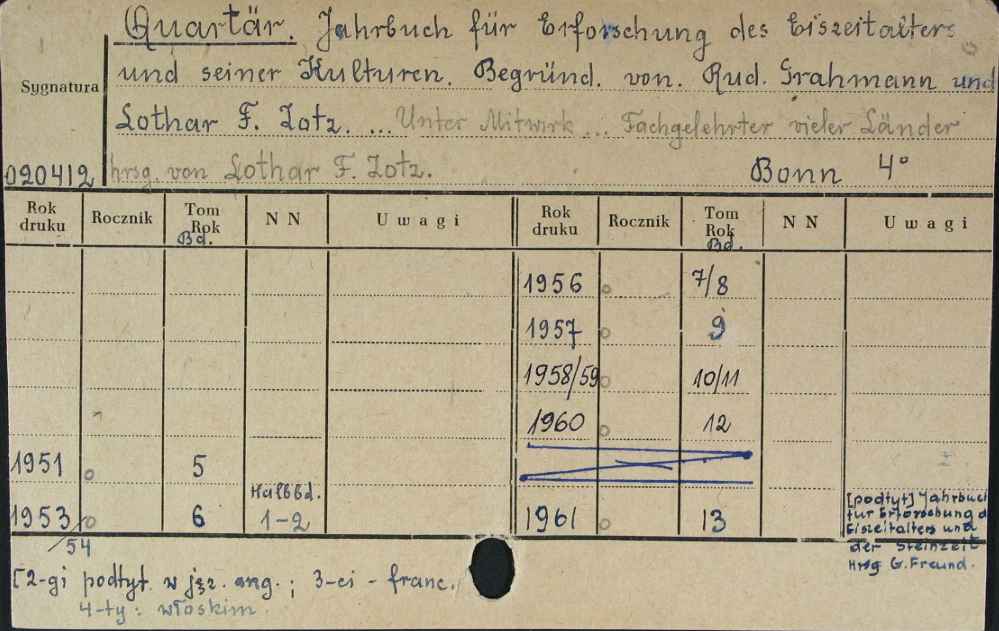 Quartär. Jahrbuch für Erforschung des Eiszeitalters
und seiner Kulturen. Begründ. von. Rud. Grahmann und
Sygnatura
Lothar F. Zotz. ... Unter Mitwirk... Fachgelehrter vieler Länder
020412 hrsg. von Lothar F. Zotz. Bonn 4°
Rok druku Rocznik Tom Rok Bd. N N Uwagi Rok druku Rocznik Tom Rok Bd. N N Uwagi
1956 7/8
1957 9
1958/59 10/11
1960 12
1951 5
1953/54 6 Halbbd. 1-2 1961 13
[podtyt] Jahrbuch
für Erforschung d
Eiszeitalters und
der Steinzeit
Hrsg G. Freund.
[2-gi podtyt. w jęz. ang.; 3-ci - franc.
4-ty: włoskim.